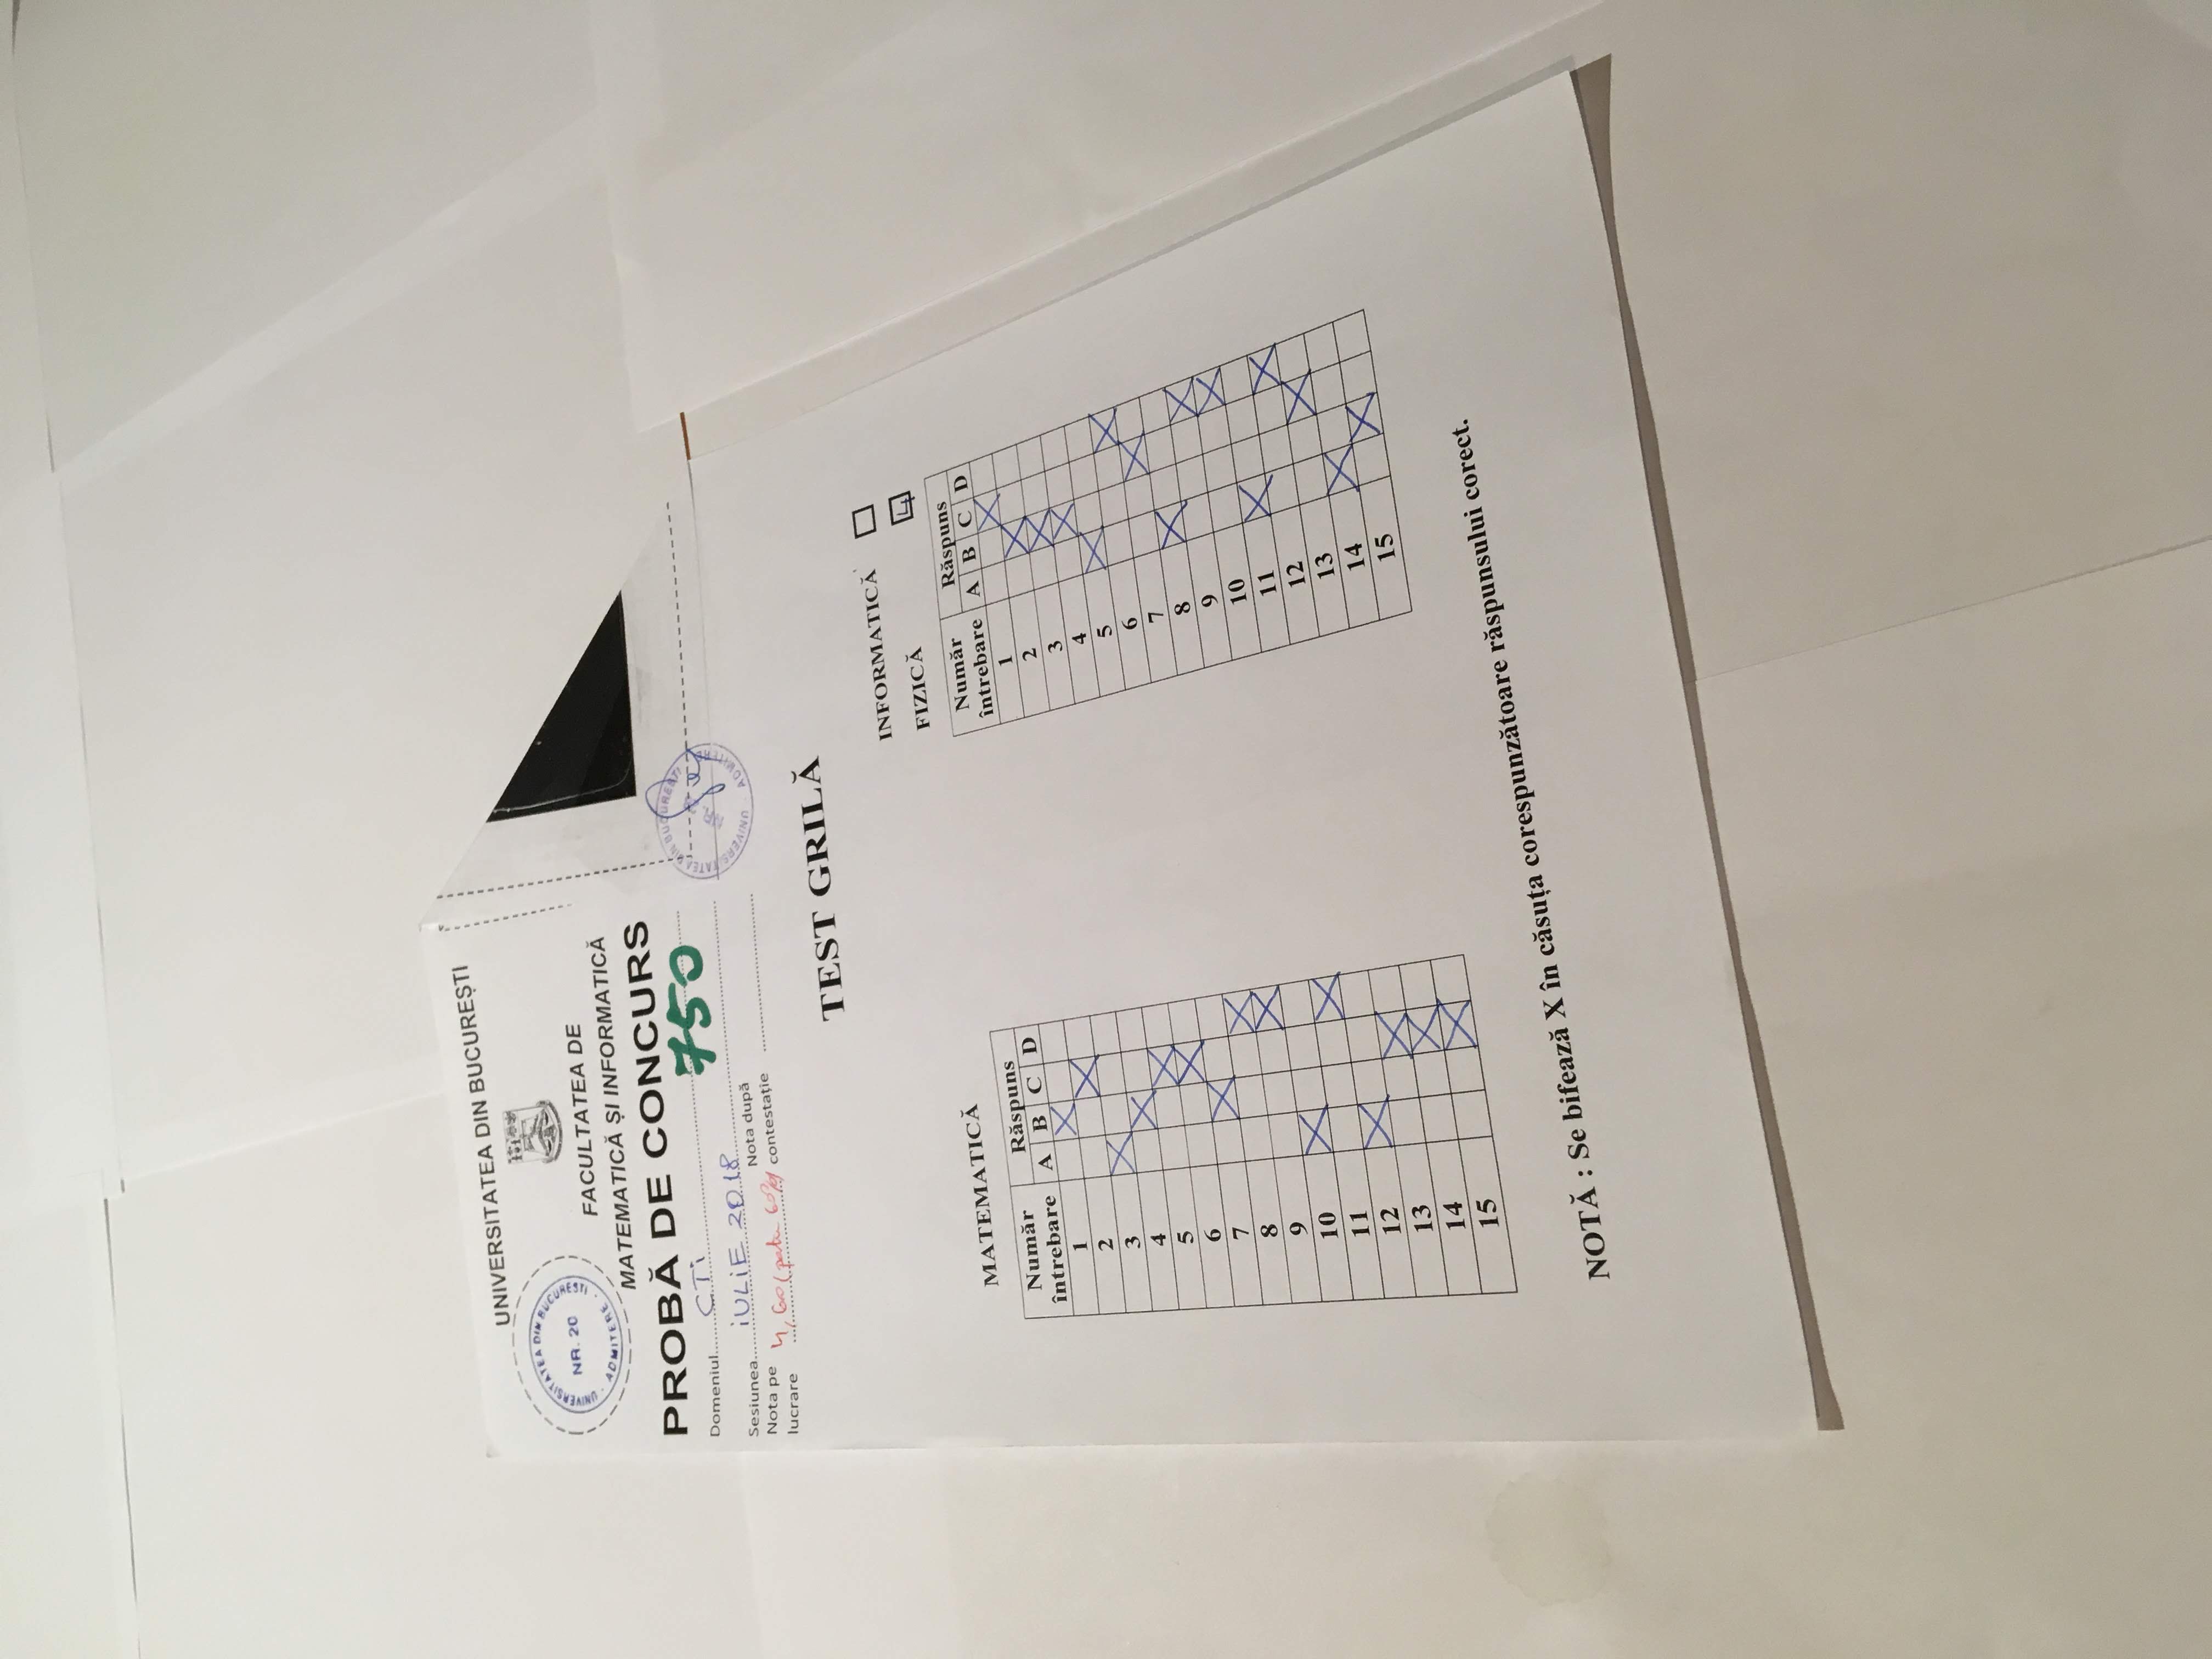 UNIVERSITATEA DIN BUCUREȘTI
UNIVERSITATEA DIN BUCUREȘTI
NR. 20
ADMITERE
FACULTATEA DE
MATEMATICĂ ȘI INFORMATICĂ
PROBĂ DE CONCURS
Domeniul CTi 750
Sesiunea iULiE 2018
Nota pe lucrare 4,60 Nota după contestație
UNIVERSITATEA DIN BUCUREȘTI
NR. 20
ADMITERE
TEST GRILĂ
INFORMATICĂ
FIZICĂ 4
MATEMATICĂ
Număr întrebare Răspuns
A B C D
1 X
2 X
3 X
4 X
5 X
6 X
7 X
8 X
9 X
10 X
11 X
12 X
13 X
14 X
15 X
Număr întrebare Răspuns
A B C D
1 X
2 X
3 X
4 X
5 X
6 X
7 X
8 X
9 X
10 X
11 X
12 X
13 X
14 X
15 X
NOTĂ : Se bifează X în căsuța corespunzătoare răspunsului corect.